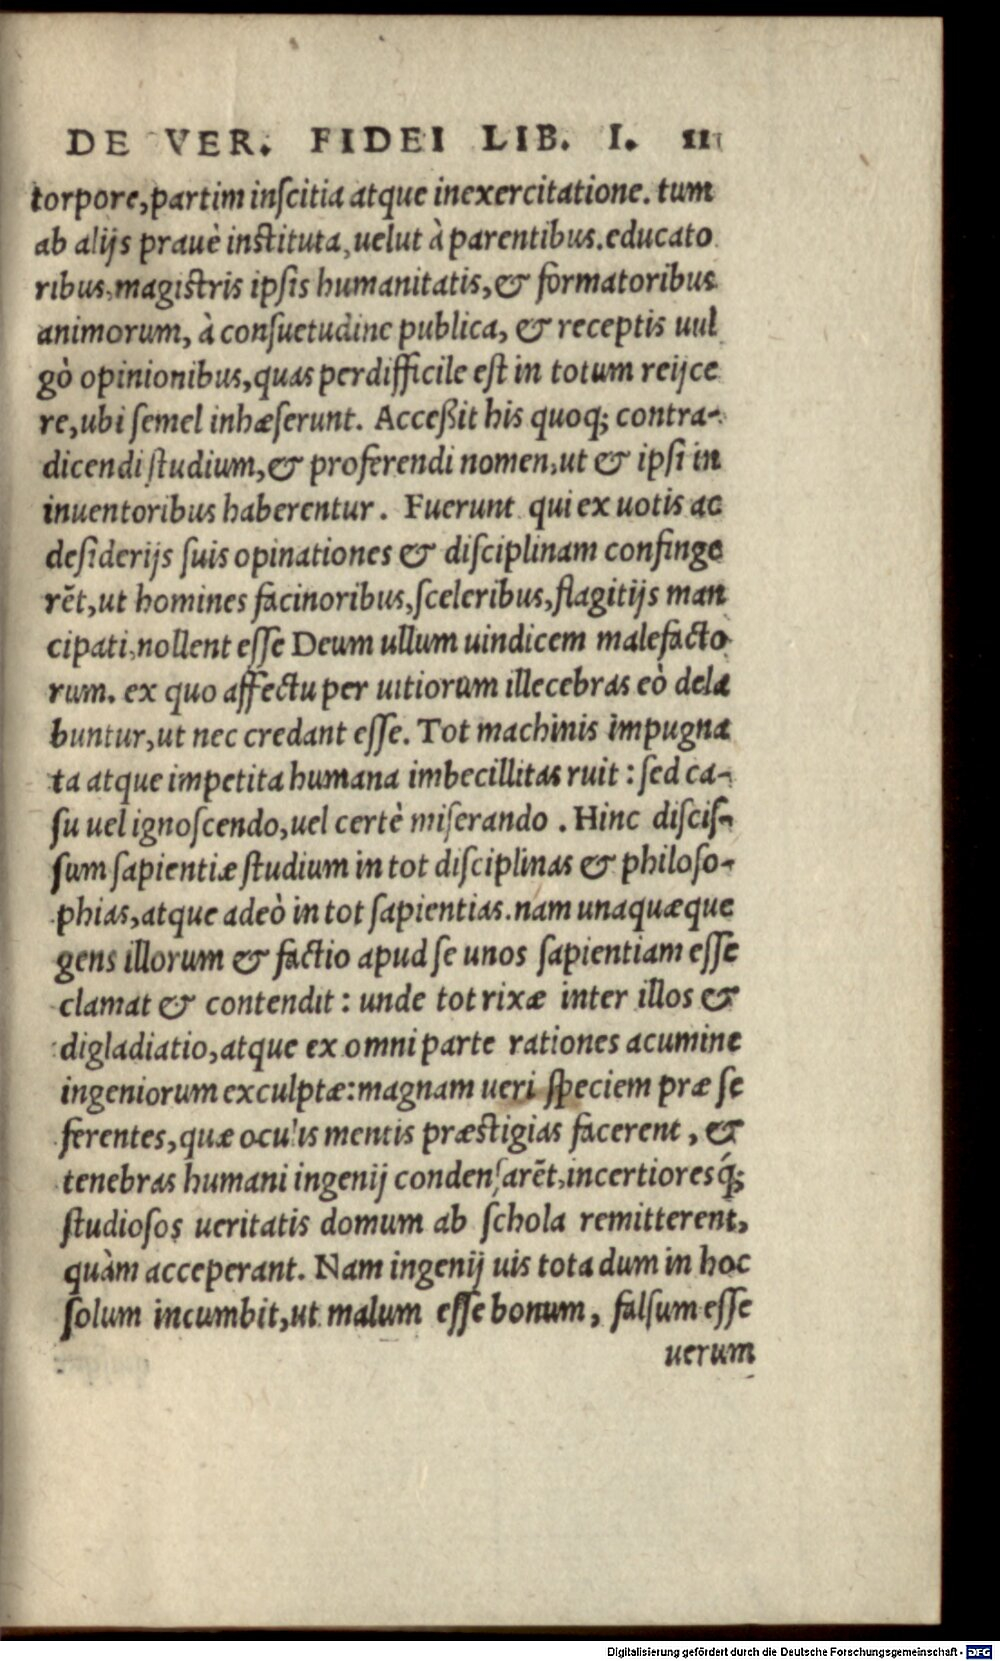 DE VER. FIDEI LIB. I. 11
torpore, partim inſcitia atque inexercitatione. tum
ab alijs prauè inſtituta, uelut à parentibus. educato
ribus, magiſtris ipſis humanitatis, & formatoribus
animorum, à conſuetudine publica, & receptis uul
gò opinionibus, quas perdifficile eſt in totum reijce
re, ubi ſemel inhæſerunt. Acceßit his quoq; contra-
dicendi ſtudium, & proferendi nomen, ut & ipſi in
inuentoribus haberentur. Fuerunt qui ex uotis ac
deſiderijs ſuis opinationes & diſciplinam confinge
rēt, ut homines facinoribus, ſceleribus, flagitijs man
cipati, nollent eſſe Deum ullum uindicem malefacto
rum. ex quo affectu per uitiorum illecebras eò dela
buntur, ut nec credant eſſe. Tot machinis impugna
ta atque impetita humana imbecillitas ruit: ſed ca-
ſu uel ignoſcendo, uel certè miſerando. Hinc diſciſ-
ſum ſapientiæ ſtudium in tot diſciplinas & philoſo-
phias, atque adeò in tot ſapientias. nam unaquæque
gens illorum & factio apud ſe unos ſapientiam eſſe
clamat & contendit: unde tot rixæ inter illos &
digladiatio, atque ex omni parte rationes acumine
ingeniorum exculptæ: magnam ueri ſpeciem præ ſe
ferentes, quæ oculis mentis præſtigias facerent, &
tenebras humani ingenij condenſarēt, incertioresq́;
ſtudioſos ueritatis domum ab ſchola remitterent,
quàm acceperant. Nam ingenij uis tota dum in hoc
ſolum incumbit, ut malum eſſe bonum, falſum eſſe
uerum
Digitalisierung gefördert durch die Deutsche Forschungsgemeinschaft - DFG